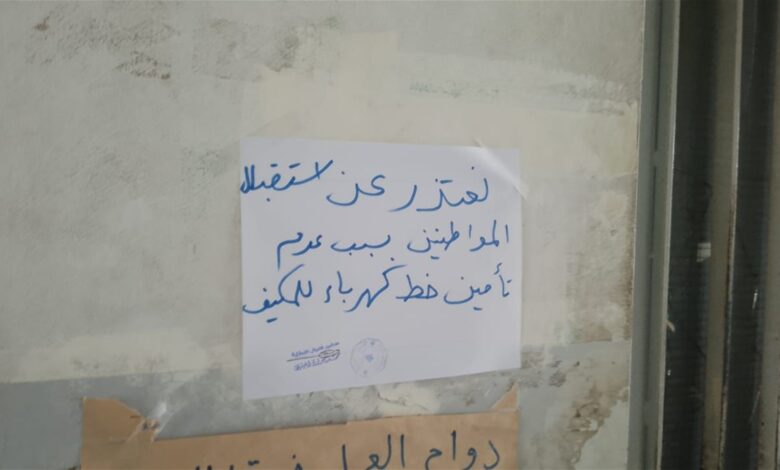 نعتذر عن استقبال
المواطنين بسبب عدم
تأمين خط كهرباء للمكيف
دوام